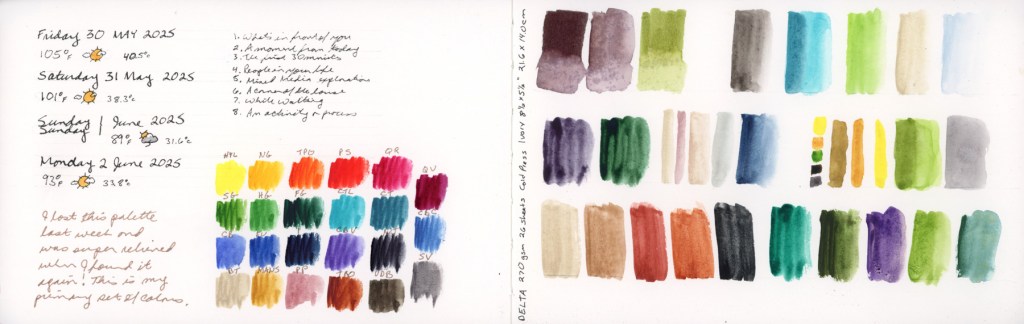 Friday 30 MAY 2025
105°F 40.5°
Saturday 31 May 2025
101°F 38.3°
Sunday
Sunday | June 2025
89°F 31.6°
Monday 2 June 2025
93°F 33.8°
I lost this palette
last week and
was super relieved
when I found it
again! This is my
primary set of colors.
1. What's in front of you
2. A moment from today
3. The first 30 minutes
4. People in your life
5. Mixed Media exploration
6. A corner of the house
7. While walking
8. An activity or process
HYL NG TPO PS QR QV
SG HG PG CTL CT CBS
CB UV SV
BT MANS PP TBO VDB
DELTA 270 gsm 26 sheets Cold Press Ivory 8½ x 5½" 21.6 x 14.0cm